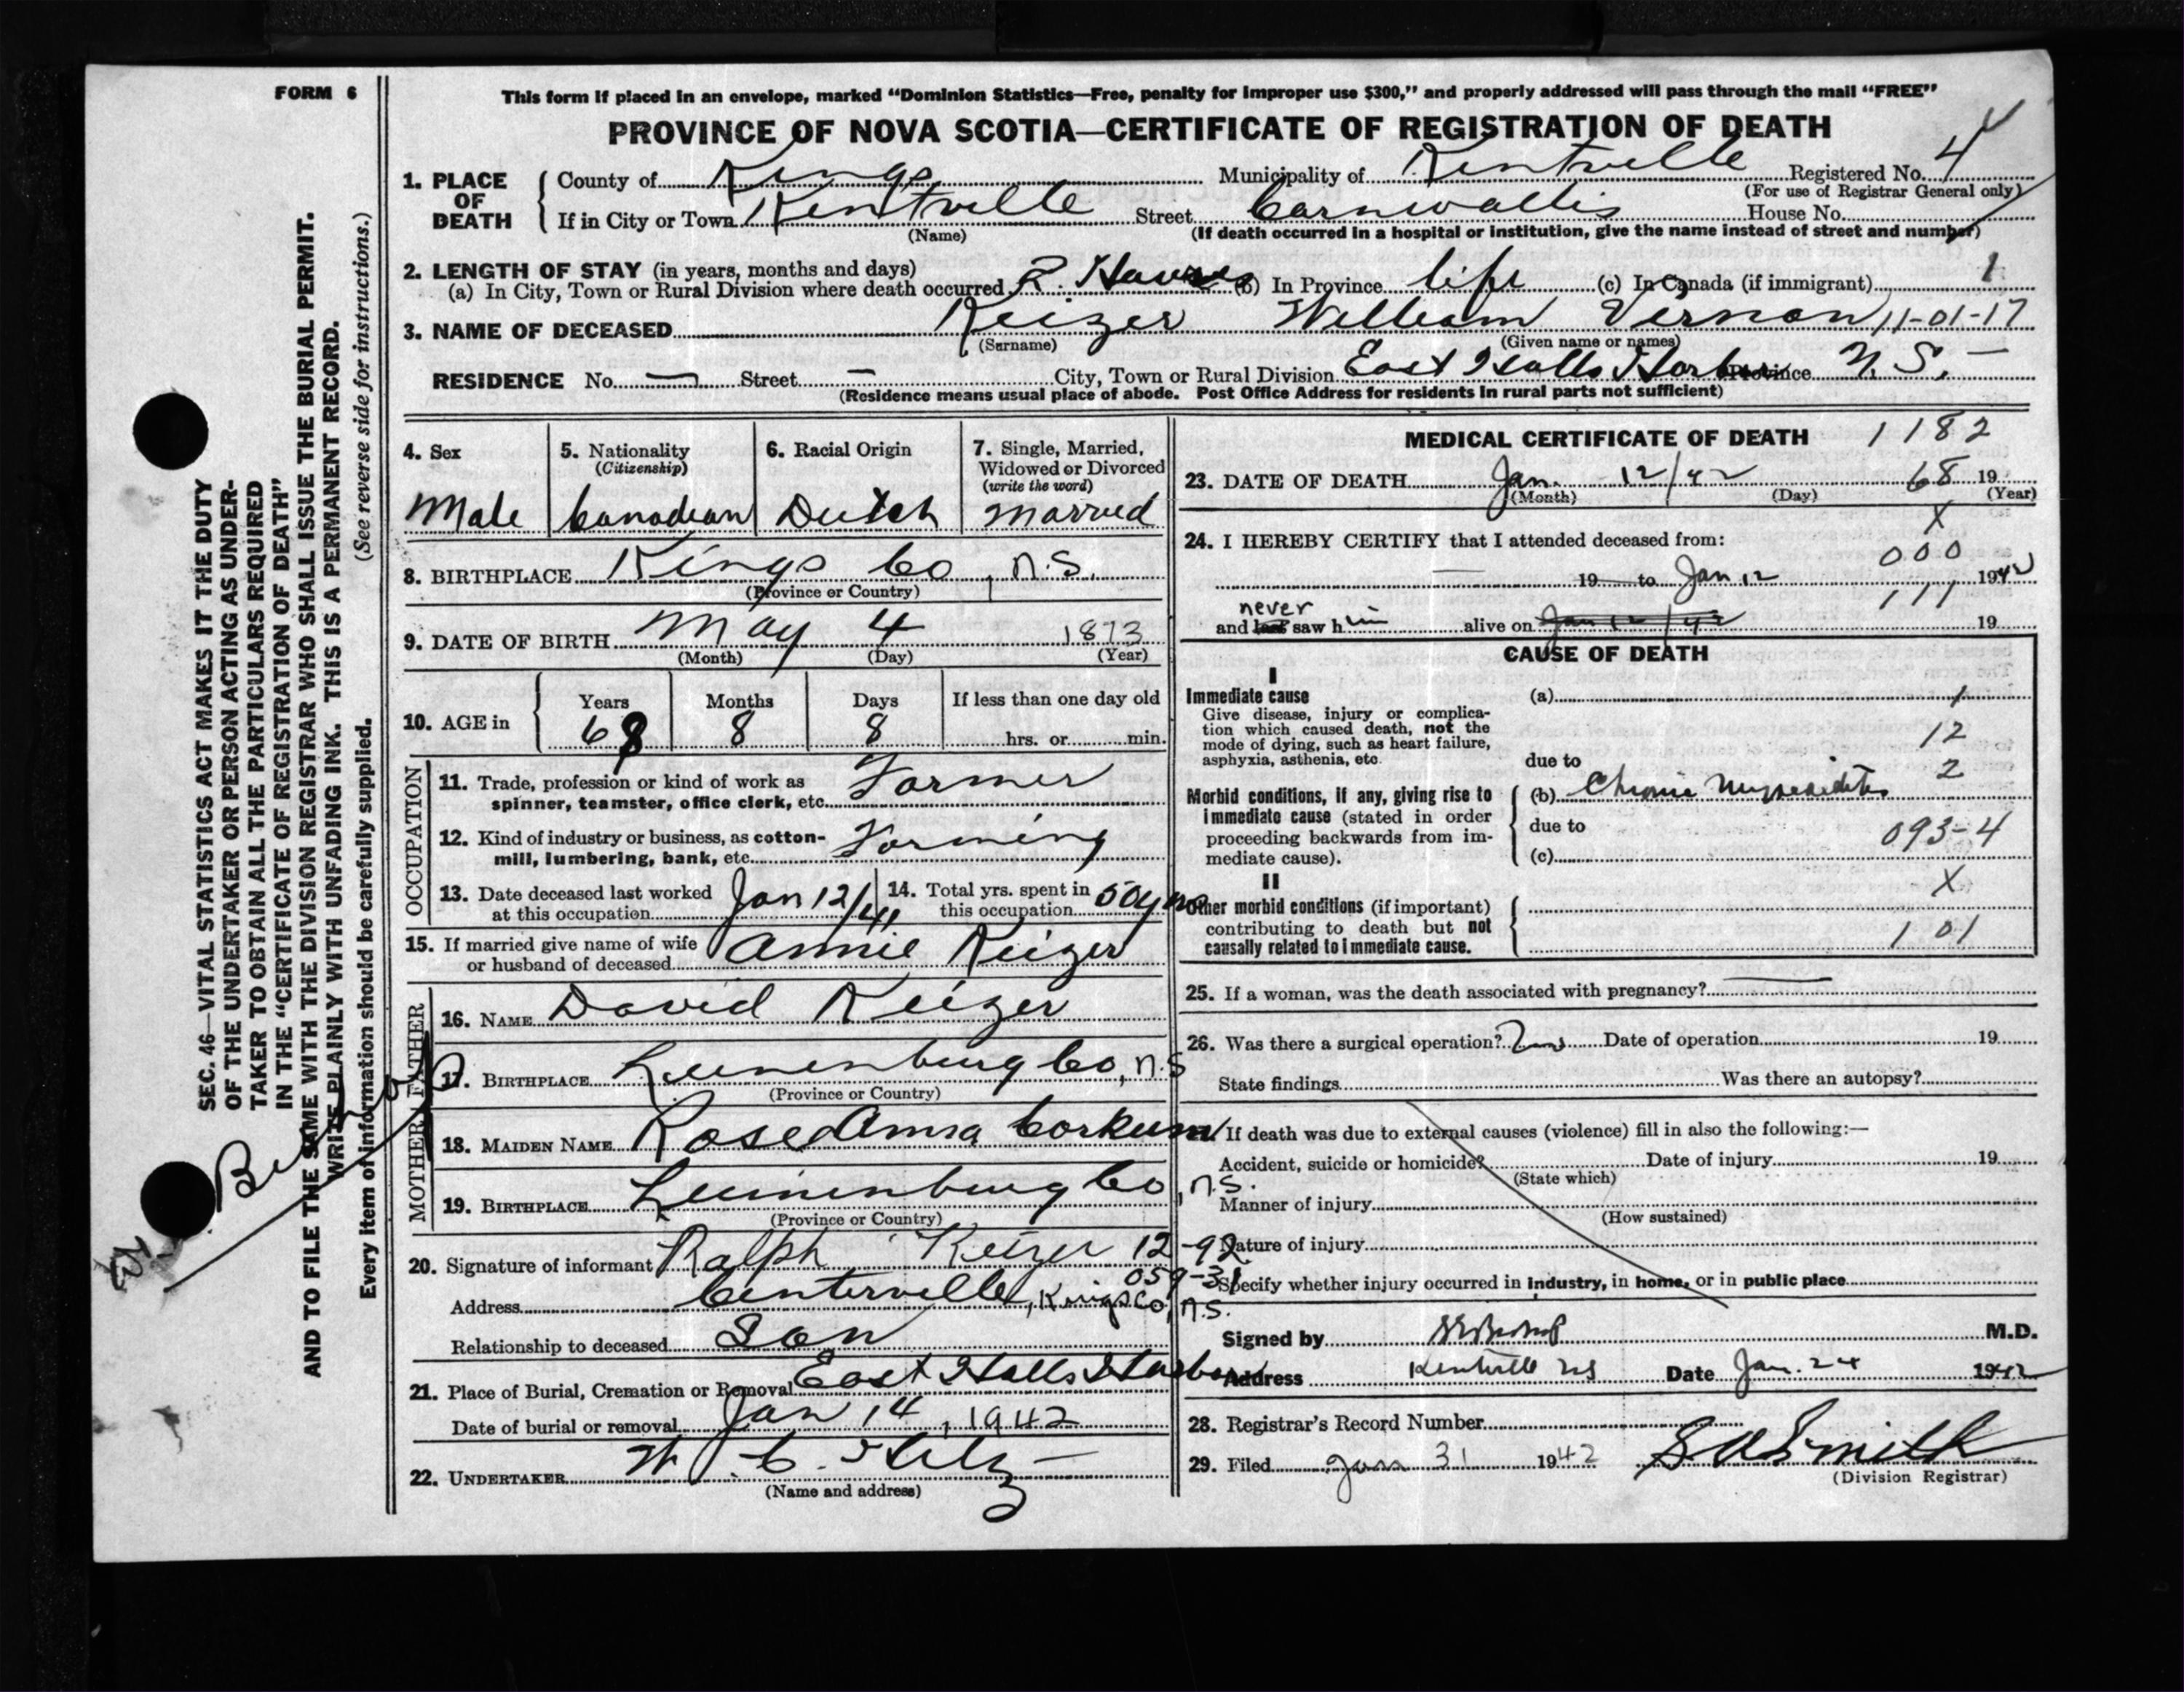 FORM 6
This form if placed in an envelope, marked “Dominion Statistics—Free, penalty for improper use $300,” and properly addressed will pass through the mail “FREE”
PROVINCE OF NOVA SCOTIA—CERTIFICATE OF REGISTRATION OF DEATH
1. PLACE OF DEATH County of Kings Municipality of Kentville Registered No. 4
(For use of Registrar General only)
If in City or Town Kentville Street Cornwallis House No.
(Name) (If death occurred in a hospital or institution, give the name instead of street and number)
2. LENGTH OF STAY (in years, months and days)
(a) In City, Town or Rural Division where death occurred 2 Hours (b) In Province life (c) In Canada (if immigrant) 1
3. NAME OF DECEASED Keizer William Vernon 11-01-17
(Surname) (Given name or names)
RESIDENCE No. — Street — City, Town or Rural Division East Halls Harbor Province N.S. —
(Residence means usual place of abode. Post Office Address for residents in rural parts not sufficient)
4. Sex
Male
5. Nationality
(Citizenship)
Canadian
6. Racial Origin
Dutch
7. Single, Married,
Widowed or Divorced
(write the word)
Married
8. BIRTHPLACE Kings Co, N.S.
(Province or Country)
9. DATE OF BIRTH May 4 1873
(Month) (Day) (Year)
10. AGE in
Years Months Days If less than one day old
68 8 8 hrs. or min.
OCCUPATION
11. Trade, profession or kind of work as Farmer
spinner, teamster, office clerk, etc.
12. Kind of industry or business, as cotton- Farming
mill, lumbering, bank, etc.
13. Date deceased last worked Jan 12/41
at this occupation
14. Total yrs. spent in 50 yrs
this occupation
15. If married give name of wife Annie Keizer
or husband of deceased
FATHER
16. NAME David Keizer
17. BIRTHPLACE Lunenburg Co, N.S
(Province or Country)
MOTHER
18. MAIDEN NAME RoseAnna Corkum
19. BIRTHPLACE Lunenburg Co, N.S.
(Province or Country)
20. Signature of informant Ralph Keizer 12-92
059-31
Address Centerville, Kings Co, N.S.
Relationship to deceased Son
21. Place of Burial, Cremation or Removal East Halls Harbor
Date of burial or removal Jan 14, 1942
22. UNDERTAKER W. C.
(Name and address)
MEDICAL CERTIFICATE OF DEATH 1182
23. DATE OF DEATH Jan. 12/42 68 19
(Month) (Day) (Year)
X
24. I HEREBY CERTIFY that I attended deceased from:
000
— 19 to Jan 12 1942
111
never
and last saw him alive on Jan 12/42 19
CAUSE OF DEATH
I
Immediate cause (a) 1
Give disease, injury or complica-
tion which caused death, not the
mode of dying, such as heart failure, 12
asphyxia, asthenia, etc.
due to 2
Morbid conditions, if any, giving rise to (b) Chronic Myocarditis
immediate cause (stated in order due to
proceeding backwards from im- 093-4
mediate cause). (c)
II X
Other morbid conditions (if important)
contributing to death but not
causally related to immediate cause. 101
25. If a woman, was the death associated with pregnancy? —
26. Was there a surgical operation? Date of operation 19
State findings Was there an autopsy?
If death was due to external causes (violence) fill in also the following:—
Accident, suicide or homicide? Date of injury 19
(State which)
Manner of injury
(How sustained)
Nature of injury
Specify whether injury occurred in industry, in home, or in public place
Signed by M.D.
Address Kentville NS Date Jan. 24 1942
28. Registrar's Record Number
29. Filed Jan 31 1942 S A Smith
(Division Registrar)
SEC. 46—VITAL STATISTICS ACT MAKES IT THE DUTY
OF THE UNDERTAKER OR PERSON ACTING AS UNDER-
TAKER TO OBTAIN ALL THE PARTICULARS REQUIRED
IN THE “CERTIFICATE OF REGISTRATION OF DEATH”
AND TO FILE THE SAME WITH THE DIVISION REGISTRAR WHO SHALL ISSUE THE BURIAL PERMIT.
WRITE PLAINLY WITH UNFADING INK. THIS IS A PERMANENT RECORD.
Every item of information should be carefully supplied. (See reverse side for instructions.)